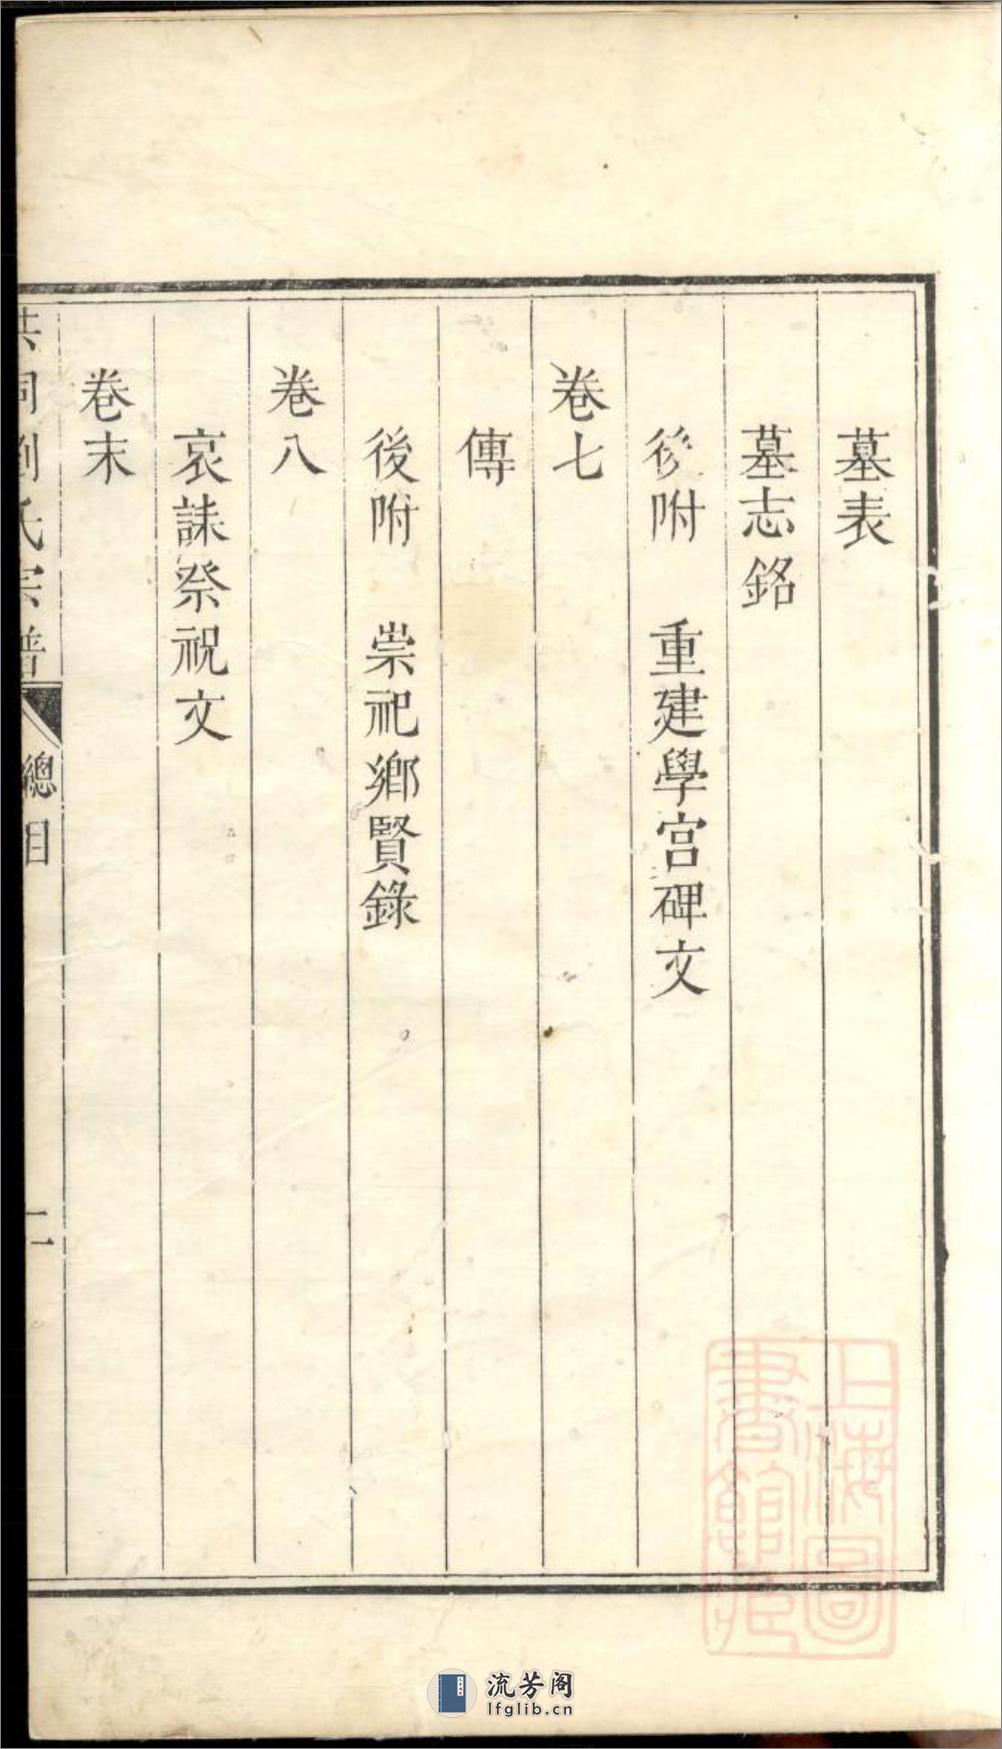 墓表
墓志銘
後附　重建學宮碑文
卷七
傳
後附　崇祀鄉賢錄
卷八
哀誄祭祝文
卷末
洪洞劉氏宗譜　總目　二
上海圖書館藏
流芳阁
lfglib.cn